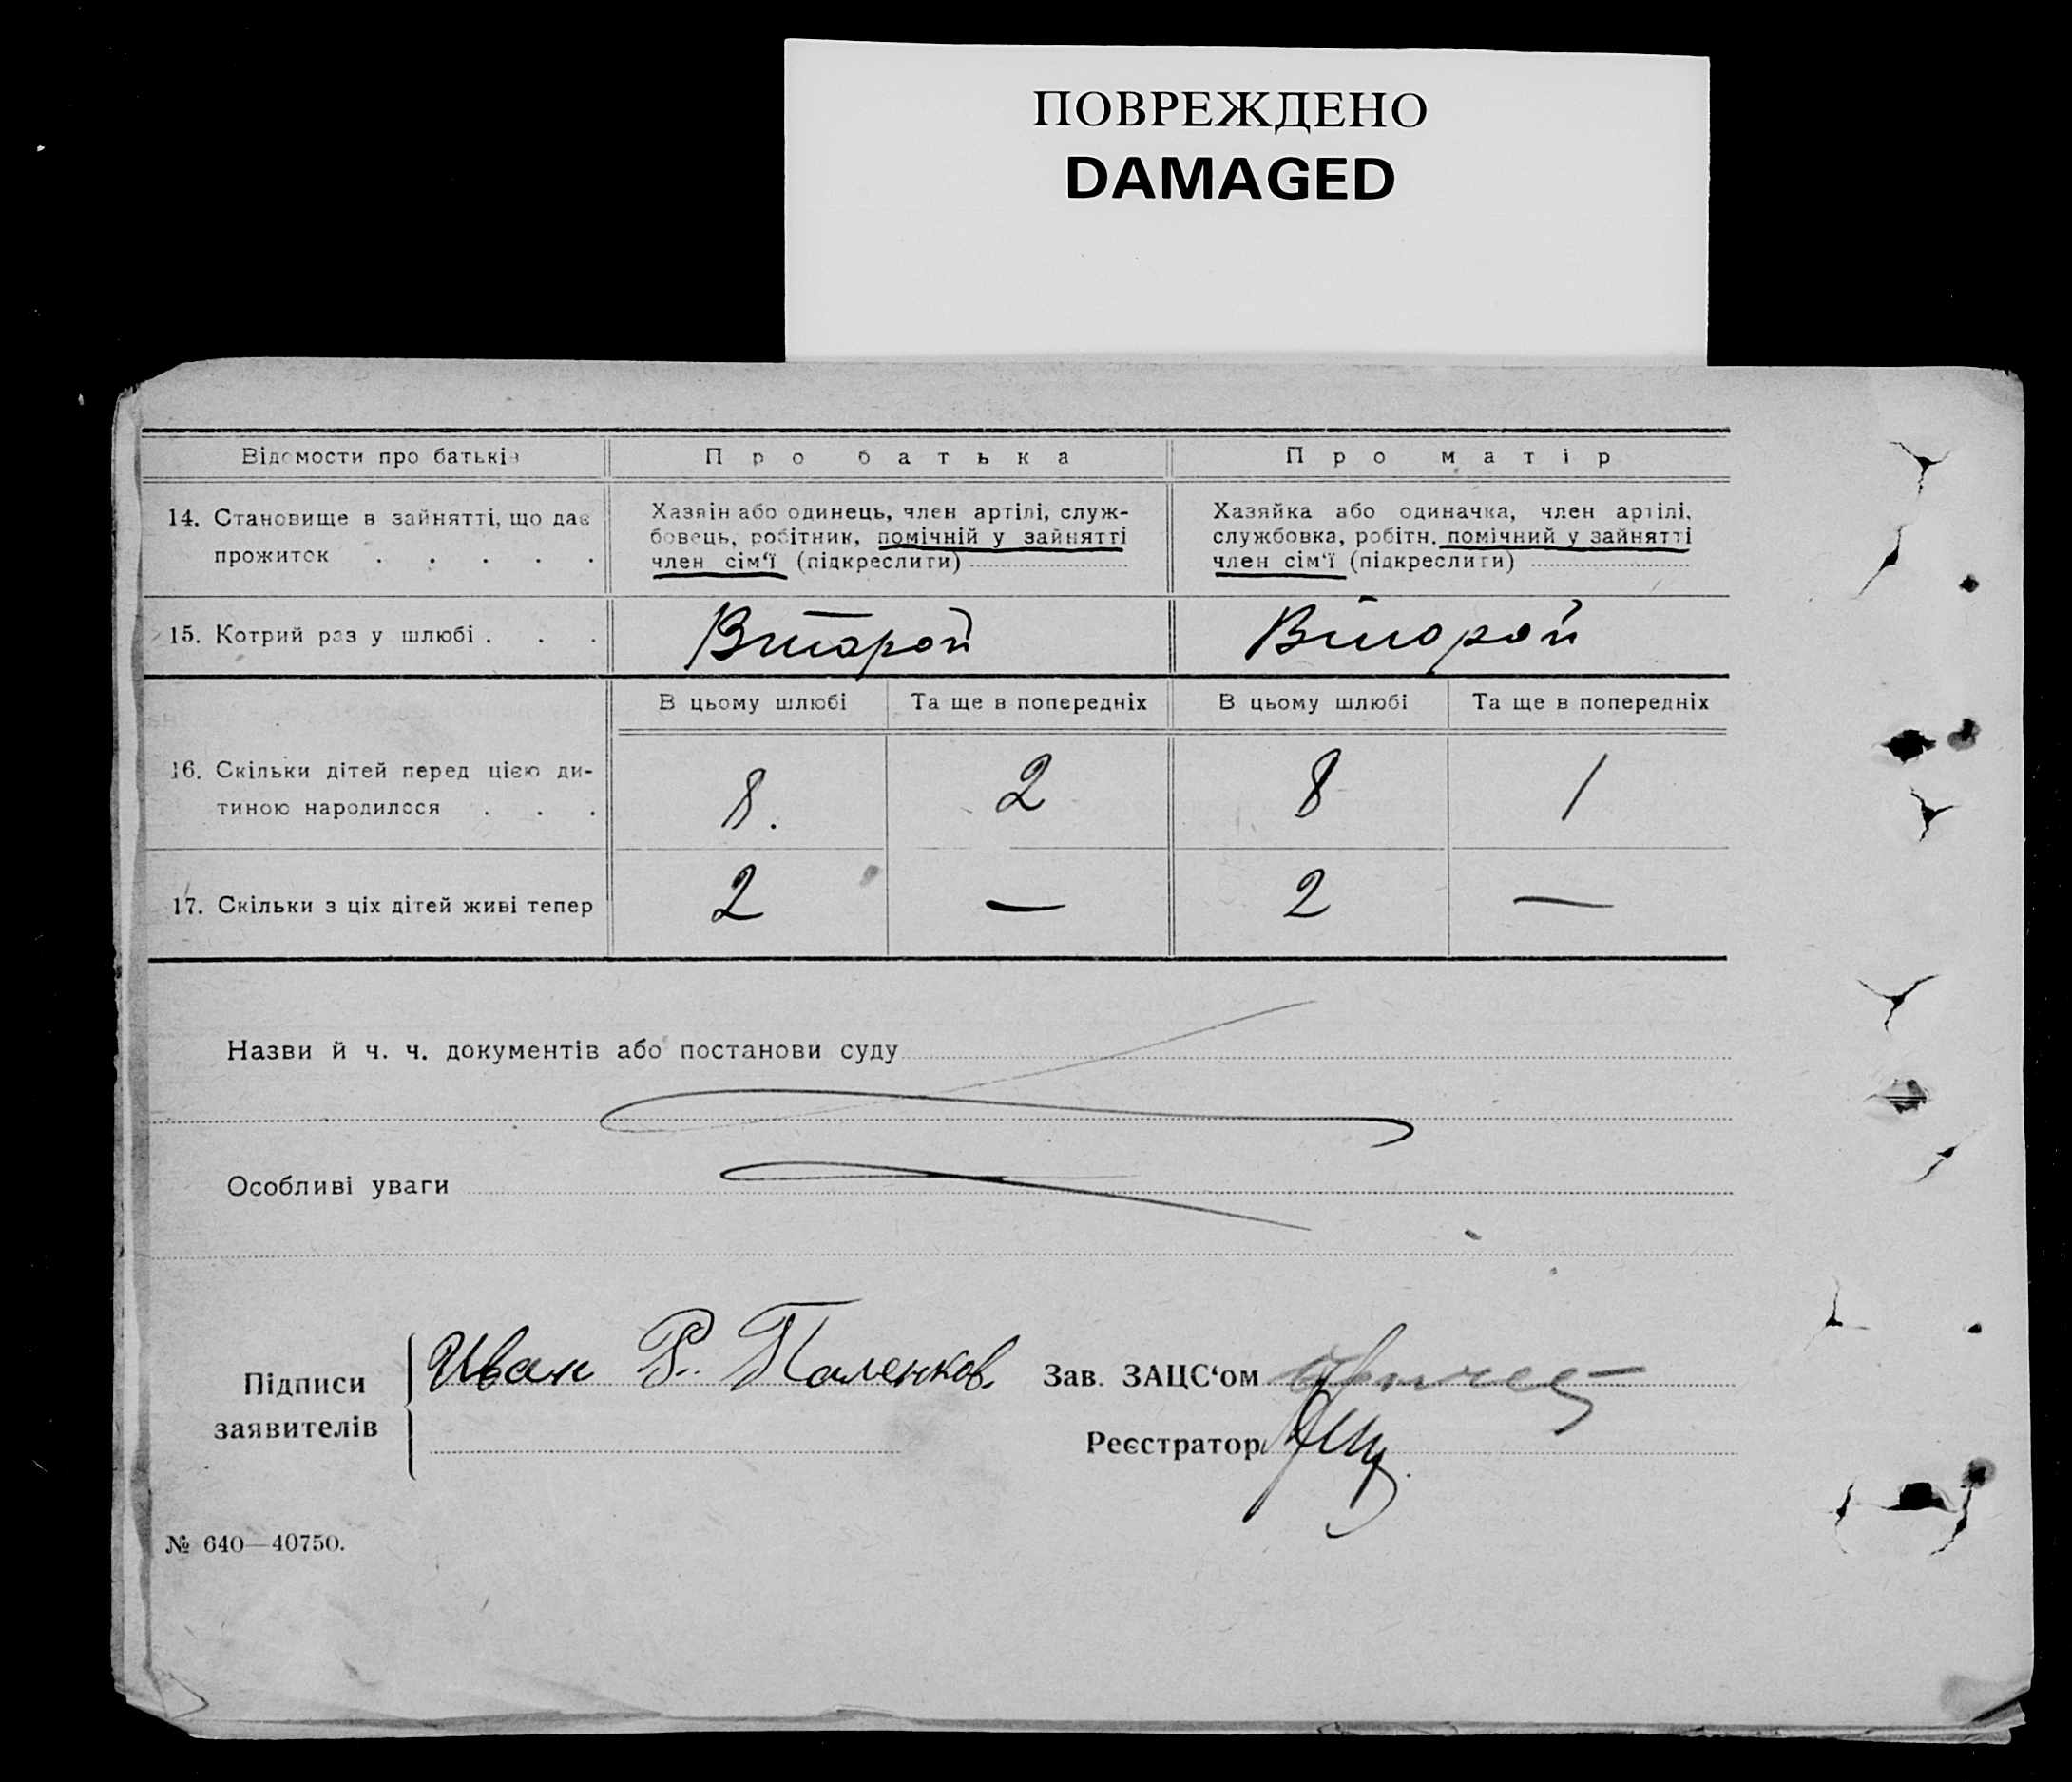 ПОВРЕЖДЕНО
DAMAGED
Відомости про батьків
Про батька
Про матір
14. Становище в зайнятті, що дає
прожиток . . . . .
Хазяїн або одинець, член артілі, служ-
бовець, робітник, помічній у зайнятті
член сім‘ї (підкреслити)
Хазяйка або одиначка, член артілі,
службовка, робітн. помічний у зайнятті
член сім‘ї (підкреслити)
15. Котрий раз у шлюбі . . .
Второй
Второй
В цьому шлюбі
Та ще в попередніх
В цьому шлюбі
Та ще в попередніх
16. Скільки дітей перед цією ди-
тиною народилося . . .
8.
2
8
1
17. Скільки з ціх дітей живі тепер
2
—
2
—
Назви й ч. ч. документів або постанови суду
Особливі уваги
Підписи
заявителів
Иван Р. Паленков.
Зав. ЗАЦС‘ом
Реєстратор
№ 640—40750.